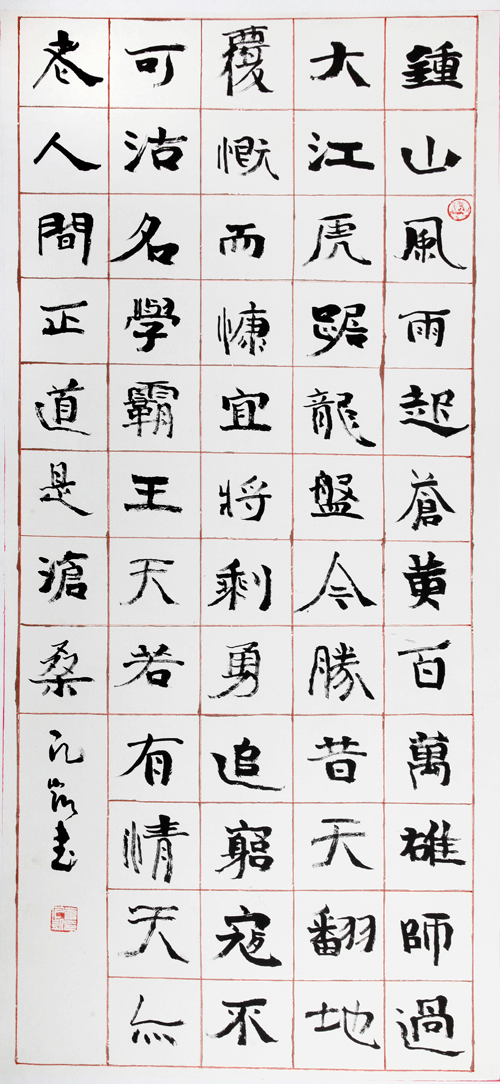 鍾山風雨起蒼黄百萬雄師過
大江虎踞龍盤今勝昔天翻地
覆慨而慷宜將剩勇追窮寇不
可沽名學霸王天若有情天亦
老人間正道是滄桑
书